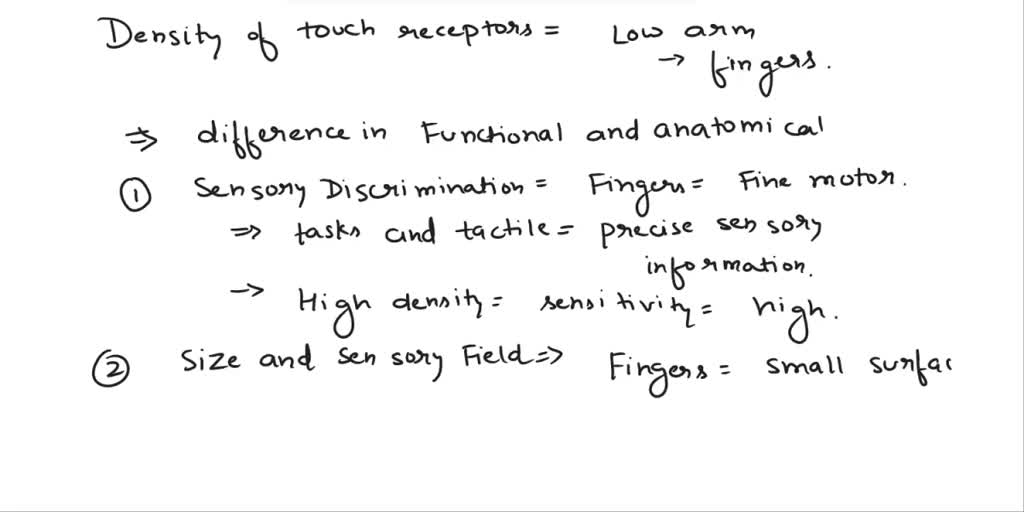 Density of touch receptors = Low arm
→ fingers.
⇒ difference in Functional and anatomical
① Sensory Discrimination = Fingers = Fine motor.
⇒ tasks and tactile = precise sensory
information.
→ High density = sensitivity = high.
② Size and sensory Field ⇒ Fingers = small surfac